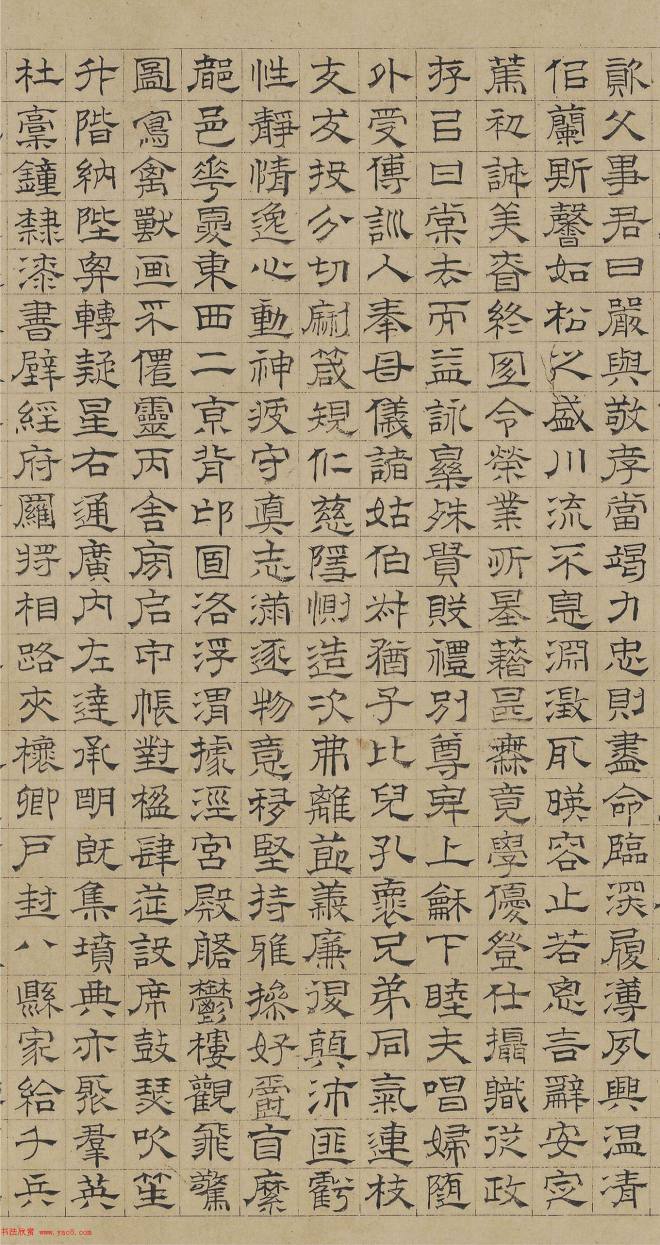 資父事君曰嚴與敬孝當竭力忠則盡命臨深履薄夙興温凊
似蘭斯馨如松之盛川流不息淵澂取暎容止若思言辭安定
篤初誠美眘終宜令榮業所基藉甚無竟學優登仕攝職從政
存以甘棠去而益詠樂殊貴賤禮別尊卑上龢下睦夫唱婦隨
外受傅訓入奉母儀諸姑伯叔猶子比兒孔懷兄弟同氣連枝
交友投分切磨箴規仁慈隱惻造次弗離節義廉退顛沛匪虧
性靜情逸心動神疲守真志滿逐物意移堅持雅操好爵自縻
都邑華夏東西二京背邙面洛浮渭據涇宮殿盤鬱樓觀飛驚
圖寫禽獸画采僊靈丙舍傍启甲帳對楹肆筵設席鼓瑟吹笙
升階納陛弁轉疑星右通廣內左達承明既集墳典亦聚羣英
杜稾鐘隸漆書壁經府羅將相路夾槐卿戶封八縣家給千兵
书法欣赏 www.yac8.com